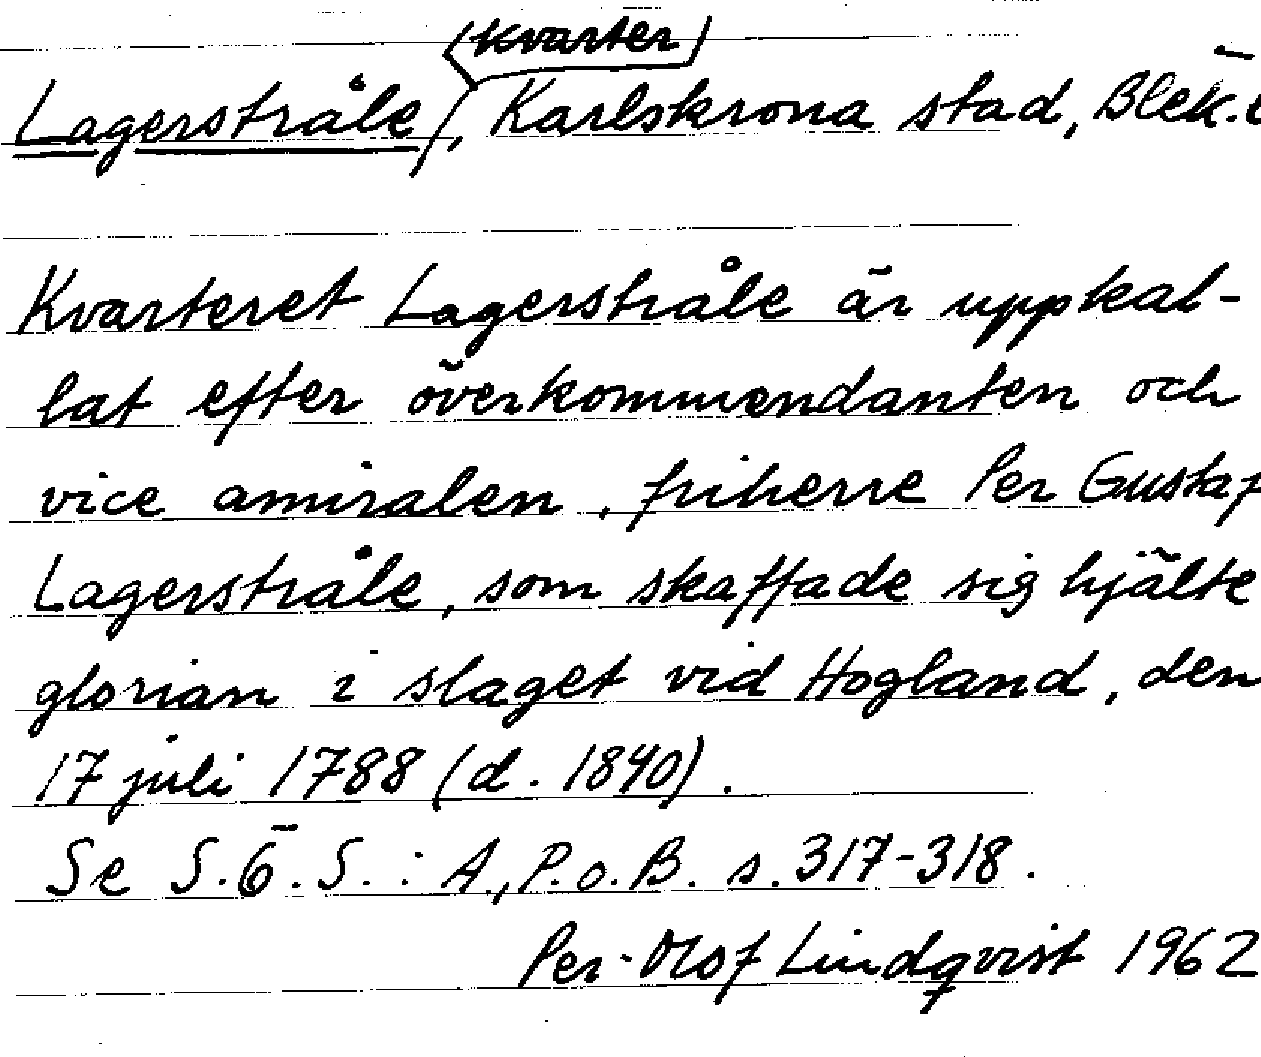 (kvarter)
Lagerstråle, Karlskrona stad, Blek. l
Kvarteret Lagerstråle är uppkal-
lat efter överkommendanten och
vice amiralen, friherre Per Gustaf
Lagerstråle, som skaffade sig hjälte
glorian i slaget vid Hogland, den
17 juli 1788 (d. 1840).
Se S.Ö.S.: A., P. o. B. s. 317-318.
Per-Olof Lindqvist 1962